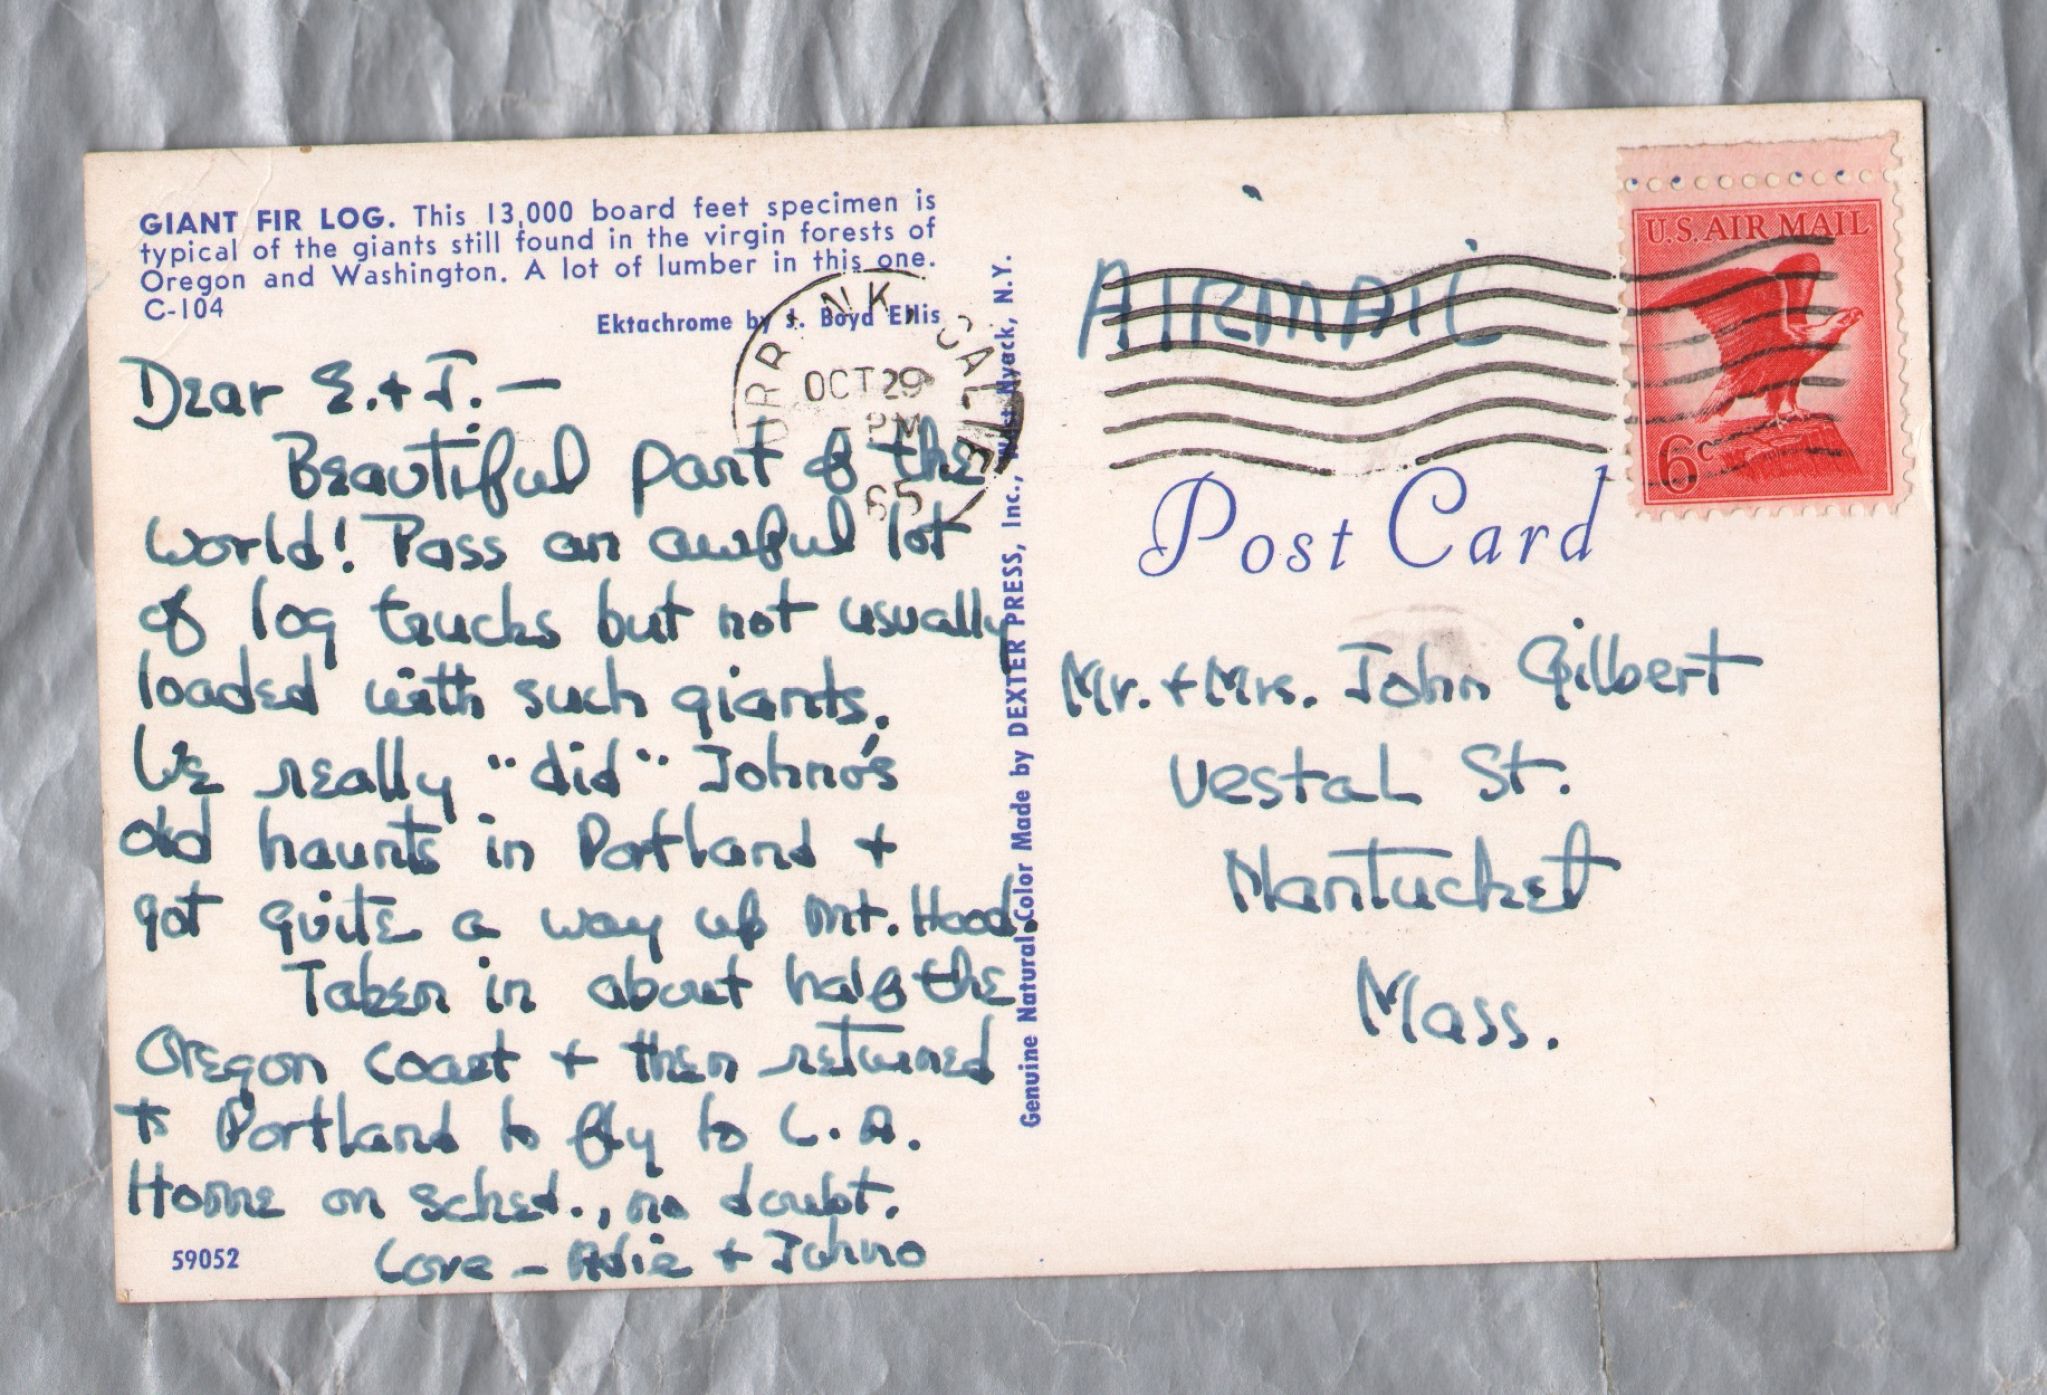 GIANT FIR LOG. This 13,000 board feet specimen is
typical of the giants still found in the virgin forests of
Oregon and Washington. A lot of lumber in this one.
C-104
Ektachrome by Boyd Ellis
Dear E. + J. —
Beautiful part of the
world! Pass an awful lot
of log trucks but not usually
loaded with such giants.
We really "did" Johno's
old haunts in Portland +
got quite a way up Mt. Hood.
Taken in about half the
Oregon coast + then returned
to Portland to fly to L.A.
Home on sched., no doubt.
Love - Adie + Johno
59052
Genuine Natural Color Made by DEXTER PRESS, Inc., West Nyack, N.Y.
CALIF
OCT 29
PM
65
AIRMAIL
U.S. AIR MAIL
6c
Post Card
Mr. + Mrs. John Gilbert
Vestal St.
Nantucket
Mass.